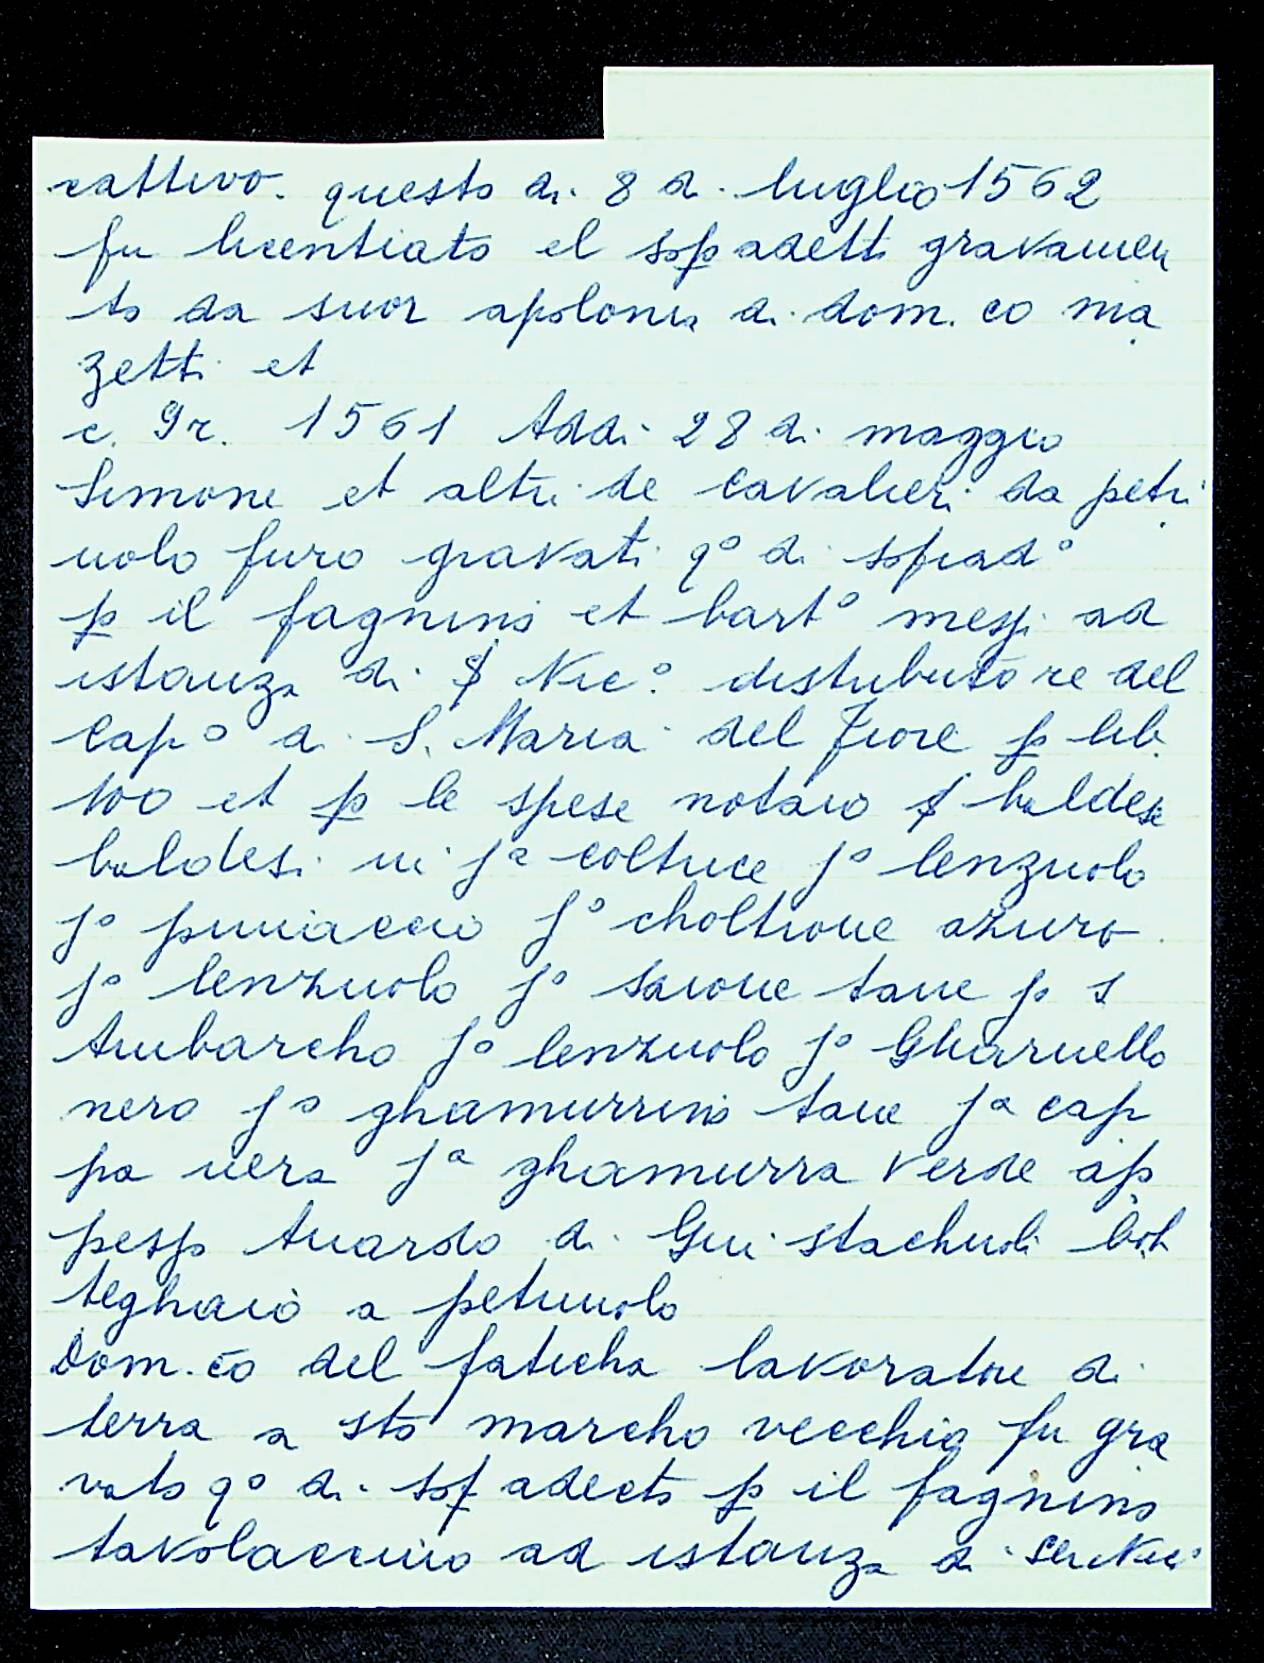 cattivo. questo di 8 di luglio 1562
fu licentiato el sopadetto gravamen
to da suor apolonia di dom.co ma
zetti et
c. 9r. 1561 Addi 28 di maggio
Simone et altri de cavalieri da petri
uolo furo gravati q° di soprad°
p il fagnino et bart° messi ad
istanza di § Nic° distributore del
Cap° di S. Maria del Fiore p lib.
100 et p le spese notaio §
baldesi in j^a coltrice j° lenzuolo
j° pimaccio j° choltrone azuro
j° lenzuolo j° saione tane p s
Ambarcho j° lenzuolo j° Gharnello
nero j° ghamurrino tane j^a cap
pa nera j^a ghamurra verde ap
pesso di stachuoli bot
teghaio a petriuolo
Dom.co del faticha lavoratore di
terra a sto marcho vecchio fu gra
vato q° di sop adecto p il fagnino
tavolaccino ad istanza di Ser Nic°